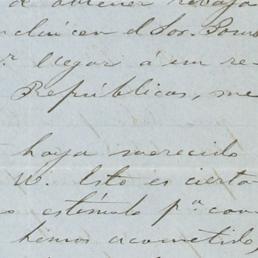 de obtener rebaja
incluir en el Sor. Tomas
r. llegar á un re-
Repúblicas, me
haya merecido
W. Esto es cierto
estímulo pa. con
hemos acometido,